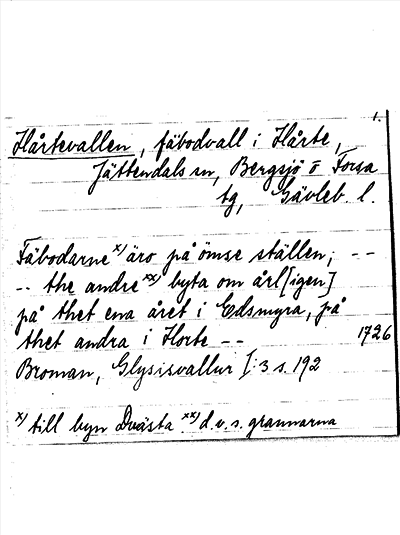 1.
Hårtevallen, fäbodvall i Hårte,
Jättendals sn, Bergsjö o Forsa
tg, Gävleb. l.
Fäbodarne x) äro på ömse ställen; --
-- the andre xx) byta om årl[igen]
på thet ena året i Edsmyra, på
thet andra i Horte -- 1726
Broman, Glysisvallur I:3 s. 192
x) till byn Dvästa. xx) d.v.s. grannarna